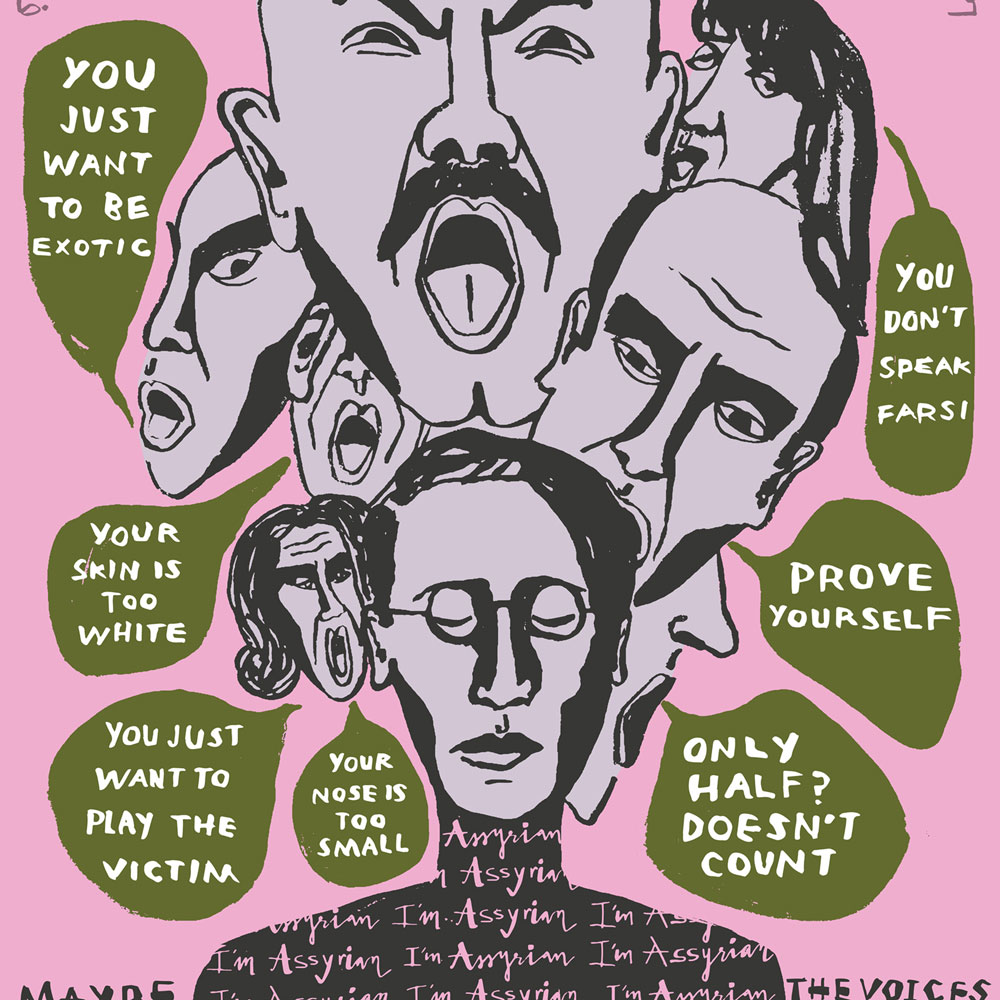 6.
YOU
JUST
WANT
TO BE
EXOTIC
YOU
DON'T
SPEAK
FARSI
YOUR
SKIN IS
TOO
WHITE
PROVE
YOURSELF
YOU JUST
WANT TO
PLAY THE
VICTIM
YOUR
NOSE IS
TOO
SMALL
ONLY
HALF?
DOESN'T
COUNT
Assyrian
Assyrian
Assyrian I'm Assyrian I'm
I'm Assyrian I'm Assyrian I'm Assyrian
I'm Assyrian I'm Assyrian I'm Assyrian
MAYBE THE VOICES